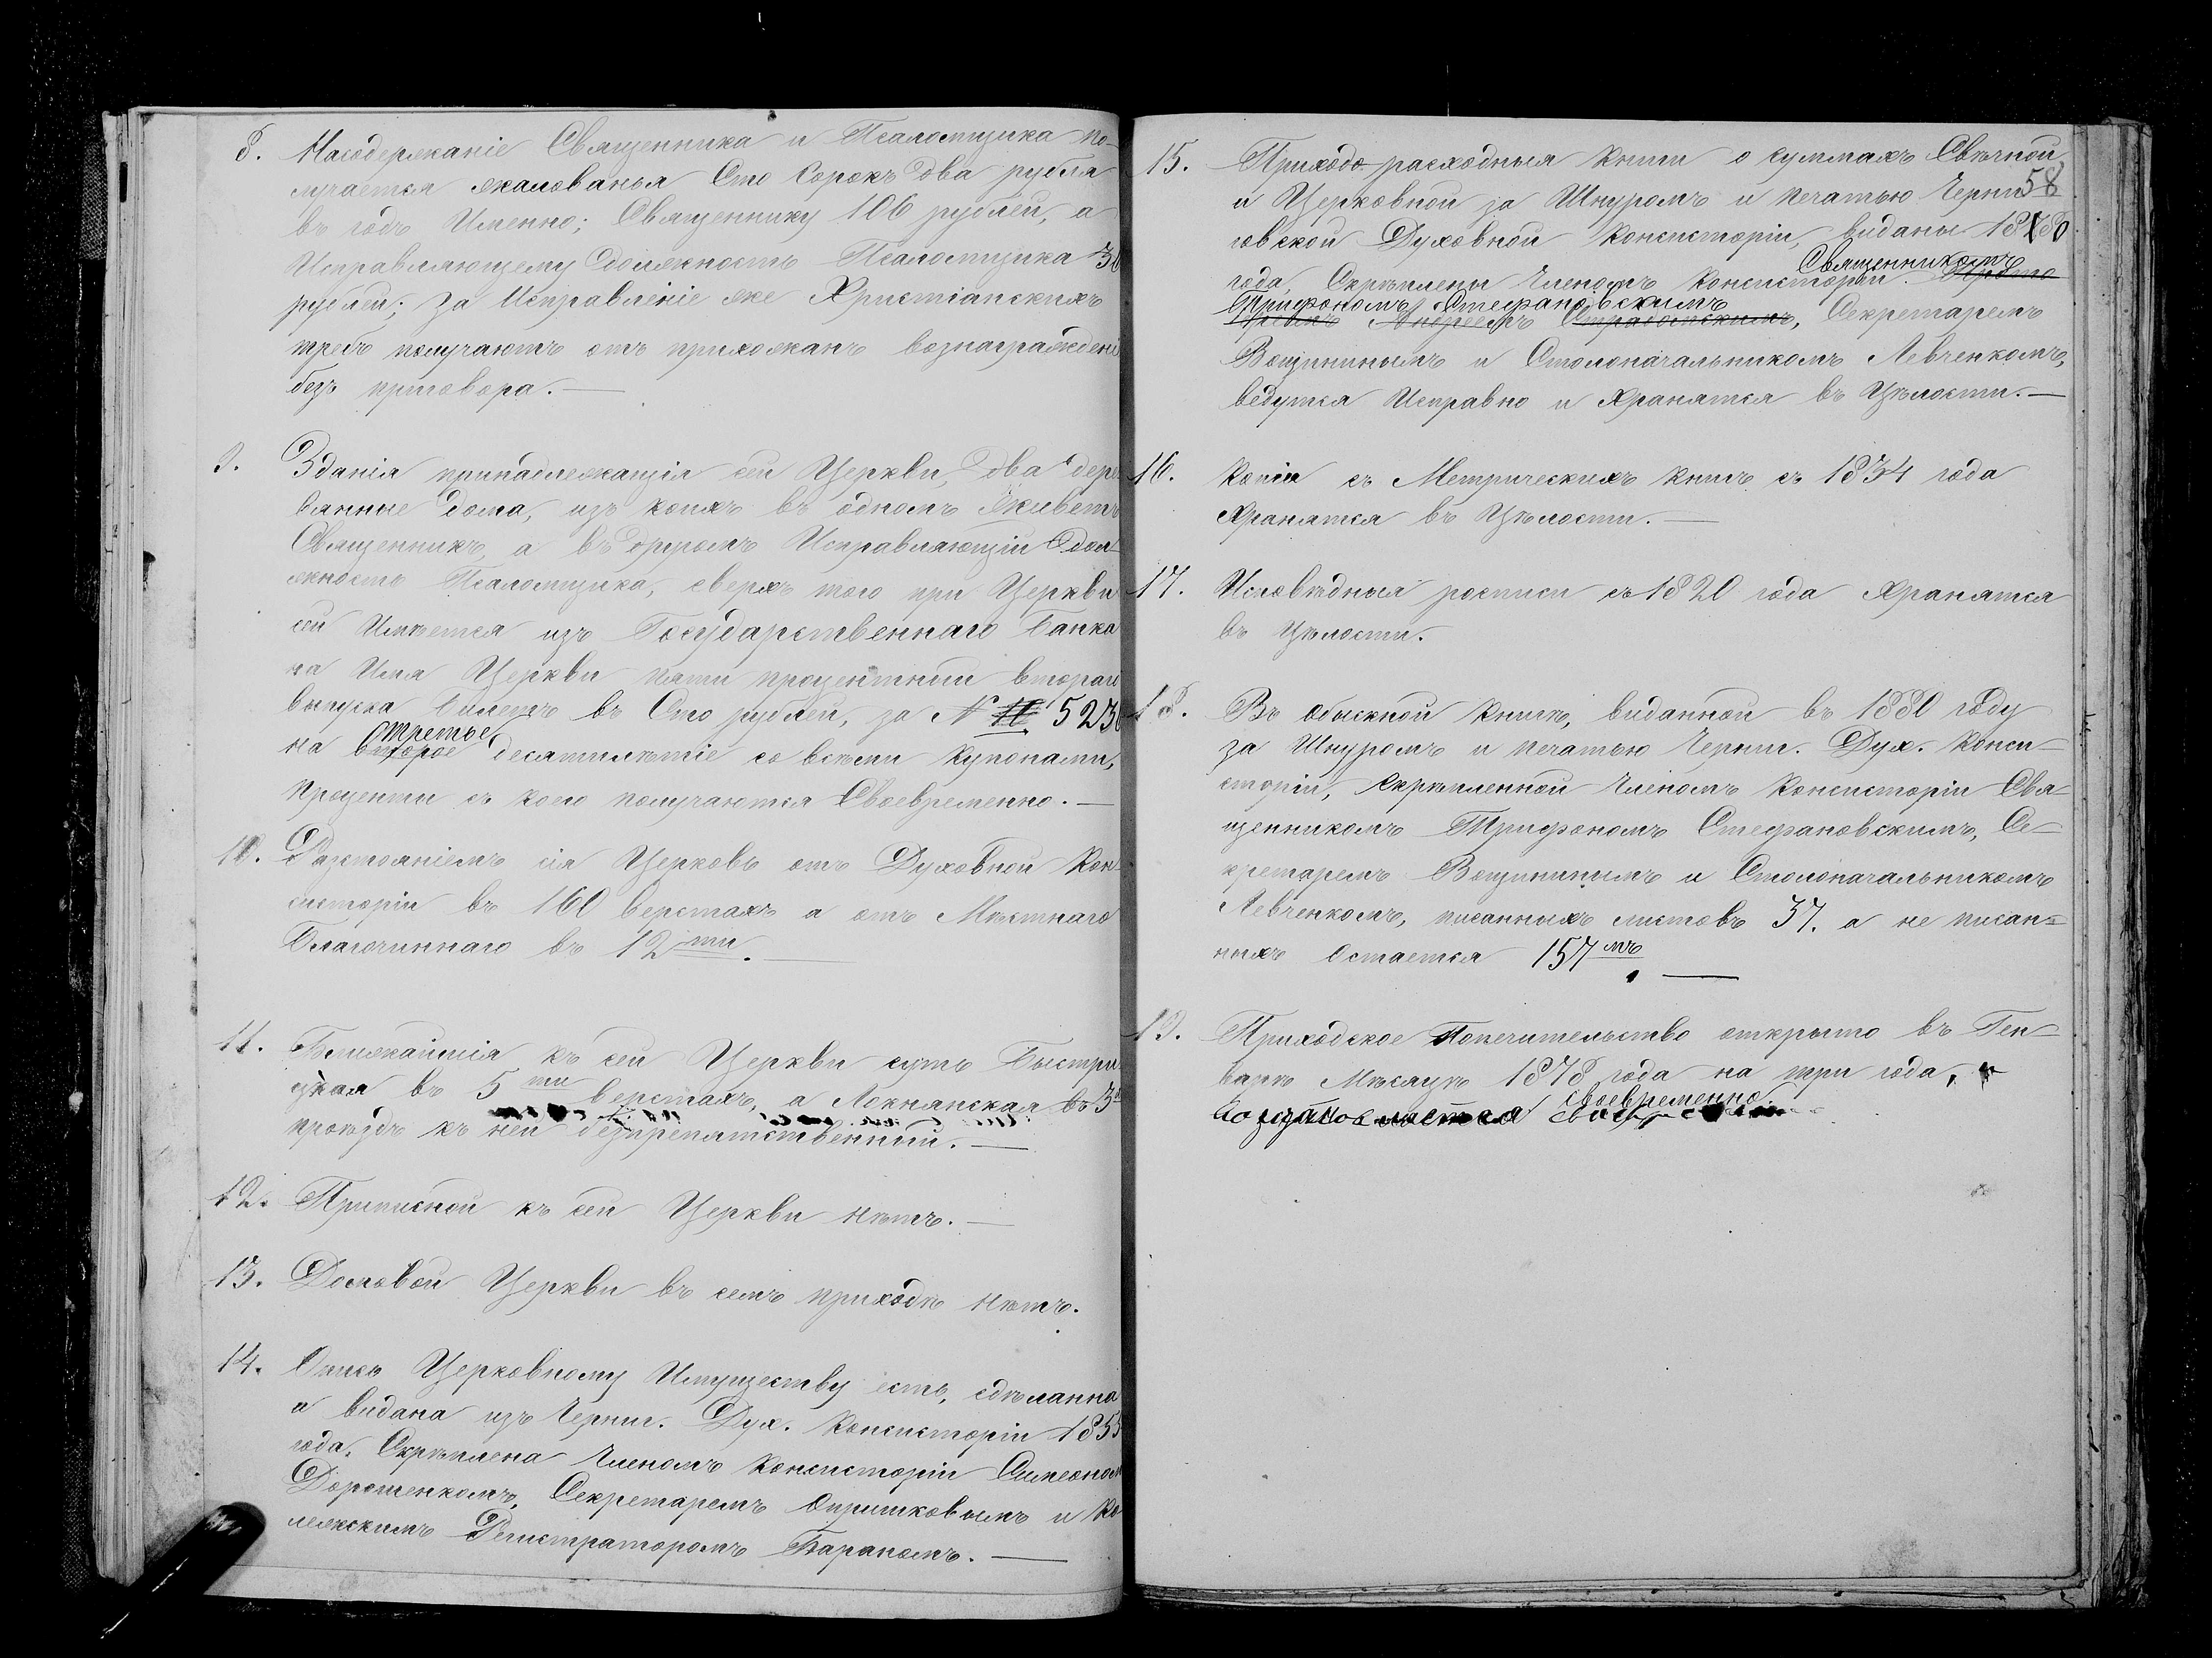 8. Насодержаніе Священника и Псаломщика по-
лучается жалованья Сто Сорокъ два рубля
въ годъ Именно; Священнику 106 рублей, а
Исправляющему должность Псаломщика 36
рублей; за Исправленіе же Христіанскихъ
требъ получаютъ отъ прихожанъ вознагражденіе
безъ приговора.—
9. Зданія принадлежащія сей Церкви, два дере
вянные дома, изъ коихъ въ одномъ Живетъ
Священникъ, а въ другомъ Исправляющій дол-
жность Псаломщика, сверхъ того при Церкви
сей Имѣется изъ Государственнаго банка
на Имя Церкви пяти процентный втораго
выпуска билетъ въ Сто рублей, за № 5236
третье
на второе десятилѣтіе со всѣми купонами,
проценти съ коего получаются Своевременно.—
10. Разстояніемъ сія Церковь отъ Духовной Кон-
систоріи въ 160 верстахъ а отъ Мѣстнаго
благочиннаго въ 12ти.—
11. Ближайшія къ сей Церкви суть Быстри
цкая въ 5ти верстахъ, а Локнянская въ 3х
проѣздъ къ ней безпрепятственный.—
12. Приписной къ сей Церкви нѣтъ.—
13. Домовой Церкви въ семъ приходѣ нѣтъ.
14. Опись Церковному Имуществу есть, сдѣланна
и видана изъ Черниг. Дух. Консисторіи 1855
года, Скрѣплена Членомъ Консисторіи Симеоном
Дорошенкомъ, Секретаремъ Опришковымъ и Ко
лежскимъ Регистраторомъ Бараномъ.—
58
15. Приходо-расходныя книги о суммахъ Свѣчной
и Церковной за Шнуромъ и печатью Черни
говской Духовной Консисторіи, виданы 1880
Священникомъ
года, Скрѣплены Членомъ Консисторіи.
Трифономъ Стефановскимъ
Андреемъ Страдомскимъ, Секретаремъ
Вощининымъ и Столоначальникомъ Левченкомъ,
ведутся Исправно и Хранятся въ Цѣлости.—
16. Копіи съ Метрическихъ книгъ съ 1834 года
Хранятся въ Цѣлости.—
17. Исповѣдныя росписи съ 1820 года Хранятся
въ Цѣлости.
18. Въ обыскной книгѣ, виданной въ 1880 году
за Шнуромъ и печатью Черниг. Дух. Конси-
сторіи, скрѣпленной Членомъ Консисторіи Свя-
щенникомъ Трифономъ Стефановскимъ, Се-
кретаремъ Вощининымъ и Столоначальникомъ
Левченкомъ, писанныхъ листовъ 37. а не писан=
ныхъ остается 157мъ.—
19. Приходское Попечительство открыто въ Ген-
варѣ Мѣсяцѣ 1878 года на три года, и
своевременно.
возобновляется